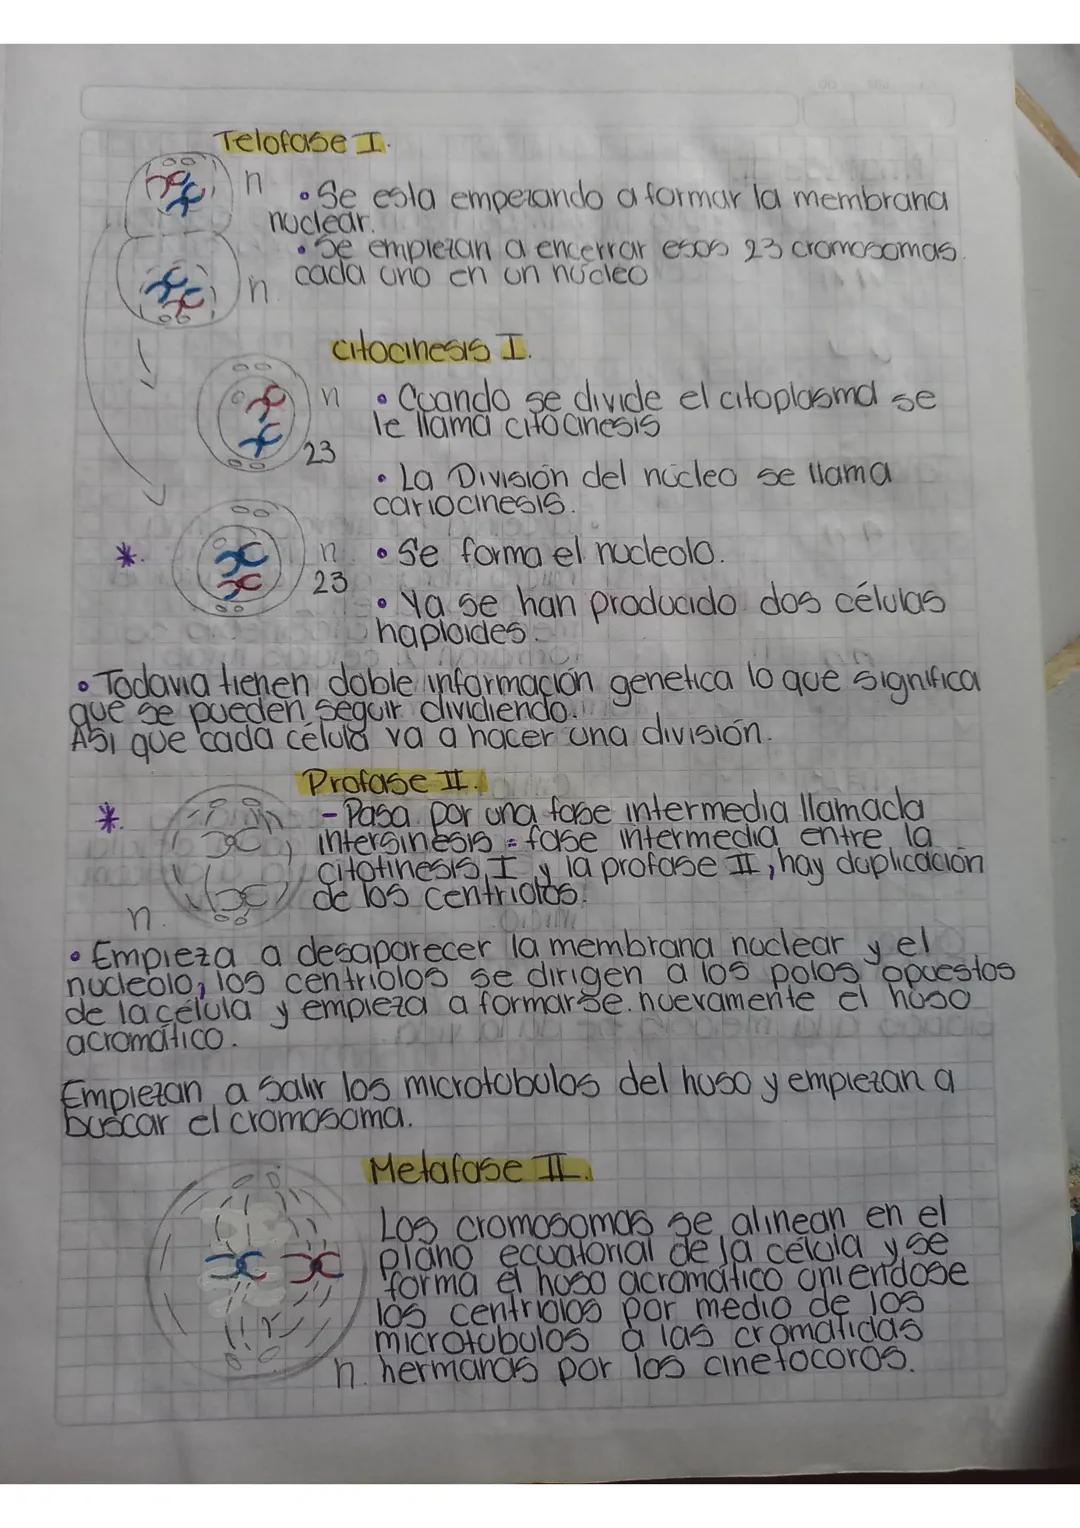 Telofase I.
n
• Se esta empezando a formar la membrana
nuclear.
• Se empiezan a encerrar esos 23 cromosomas
cada uno en un núcleo
n
citocinesis I.
n
23
• Cuando se divide el citoplasma se
le llama citocinesis
• La División del núcleo se llama
cariocinesis.
*.
n
23
• Se forma el nucleolo.
• Ya se han producido dos células
haploides.
• Todavia tienen doble información genetica lo que significa
que se pueden seguir dividiendo.
Asi que cada celula va a hacer una división.
Profase II.
*.
- Pasa por una fase intermedia llamada
intersinesis = fase intermedia entre la
citotinesis I y la profase II, hay duplicación
de los centriolos.
n.
• Empieza a desaparecer la membrana nuclear y el
nucleolo, los centriolos se dirigen a los polos opuestos
de la célula y empieza a formarse nuevamente el huso
acromático.
Empiezan a salir los microtobulos del huso y empiezan a
buscar el cromosoma.
Metafase II.
Los cromosomas se alinean en el
plano ecuatorial de la célula y se
forma el huso acromático uniendose
los centriolos por medio de los
microtobulos a las cromatidas
n. hermanas por los cinetocoros.